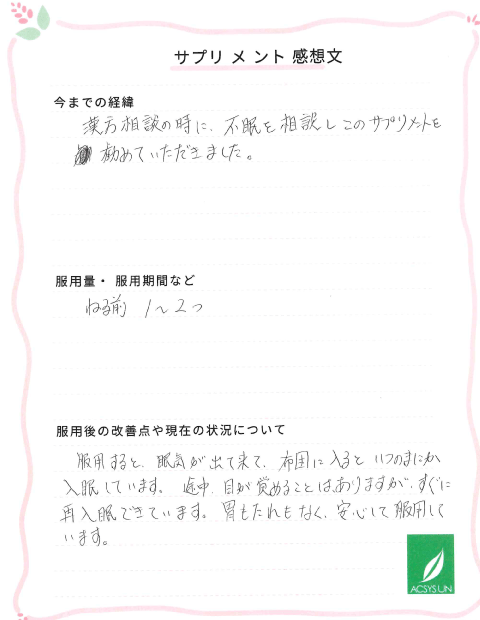 サプリメント 感想文
今までの経緯
漢方相談の時に、不眠を相談しこのサプリメントを
勧めていただきました。
服用量・服用期間など
ねる前 1～2つ
服用後の改善点や現在の状況について
服用すると、眠気が出て来て、布団に入ると いつのまにか
入眠しています。途中、目が覚めることはありますが、すぐに
再入眠できています。胃もたれもなく、安心して服用して
います。
ACSYSUN